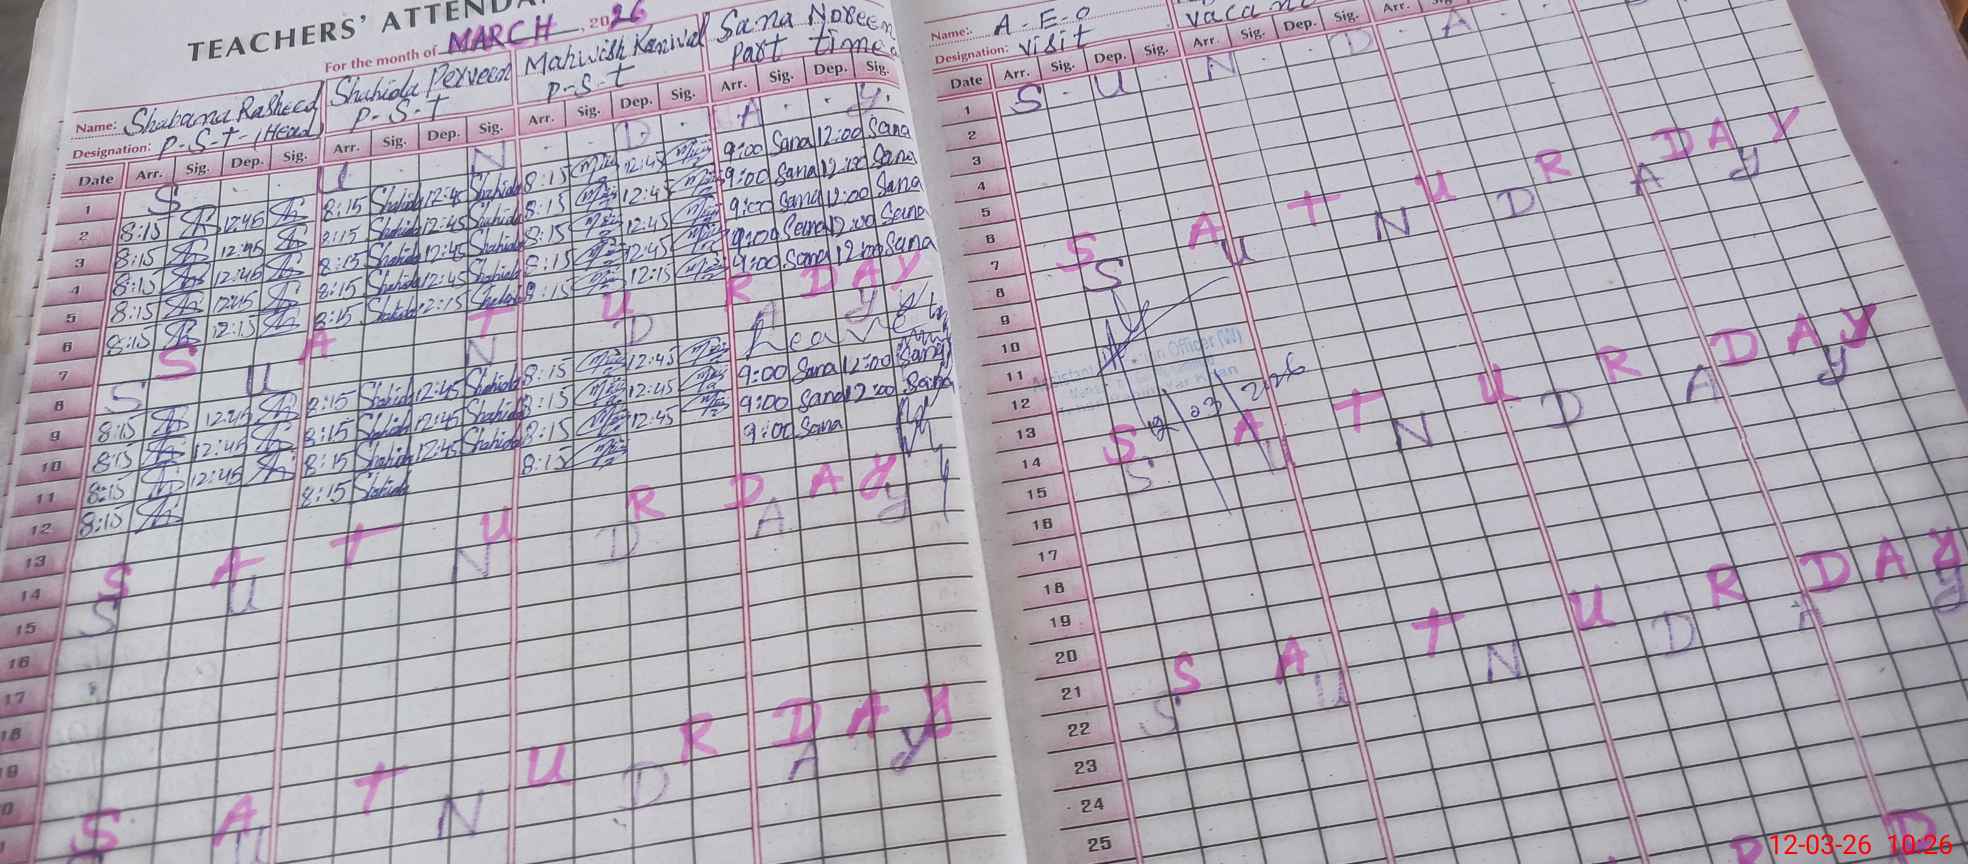 TEACHERS' ATTENDA
For the month of MARCH 2026
Name: Shabana Rasheed Shahida Perveen Mahwish Kanwal Sana Noreen
Designation: P-S-T-(Head) P-S-T P-S-t Part time
Date Arr. Sig. Dep. Sig. Arr. Sig. Dep. Sig. Arr. Sig. Dep. Sig. Arr. Sig. Dep. Sig.
1 S U N D A Y
2 8:15 12:45 8:15 Shahida 12:45 Shahida 8:15 12:45 9:00 Sana 12:00 Sana
3 8:15 12:45 8:15 Shahida 12:45 Shahida 8:15 12:45 9:00 Sana 12:00 Sana
4 8:15 12:45 8:15 Shahida 12:45 Shahida 8:15 12:45 9:00 Sana 12:00 Sana
5 8:15 12:45 8:15 Shahida 12:45 Shahida 8:15 12:45 9:00 Sana 12:00 Sana
6 8:15 12:15 8:15 Shahida 12:15 Shahida 8:15 12:15 9:00 Sana 12:00 Sana
7 S A T U R D A Y
8 S U N D A Y
9 8:15 12:45 8:15 Shahida 12:45 Shahida 8:15 12:45 Leave
10 8:15 12:45 8:15 Shahida 12:45 Shahida 8:15 12:45 9:00 Sana 12:00 Sana
11 8:15 12:45 8:15 Shahida 12:45 Shahida 8:15 12:45 9:00 Sana 12:00 Sana
12 8:15 8:15 Shahida 8:15 9:00 Sana
13
14 S A T U R D A Y
15 S U N D A Y
16
17
18
19
S A T U R D A Y
U N D A Y
Name: A-E-O
Designation: Visit
Date Arr. Sig. Dep. Sig. Arr. Sig. Dep. Sig. Arr.
1 S U N D A
2
3
4
5
6
7 S A T U R D A Y
8 S U N D A Y
9
10
11
12
Officer (W)
12/03/2026
13
14 S A T U R D A Y
15 S U N D A Y
16
17
18
19
20
21 S A T U R D A Y
22 S U N D A Y
23
24
25
R D
12-03-26 10:26